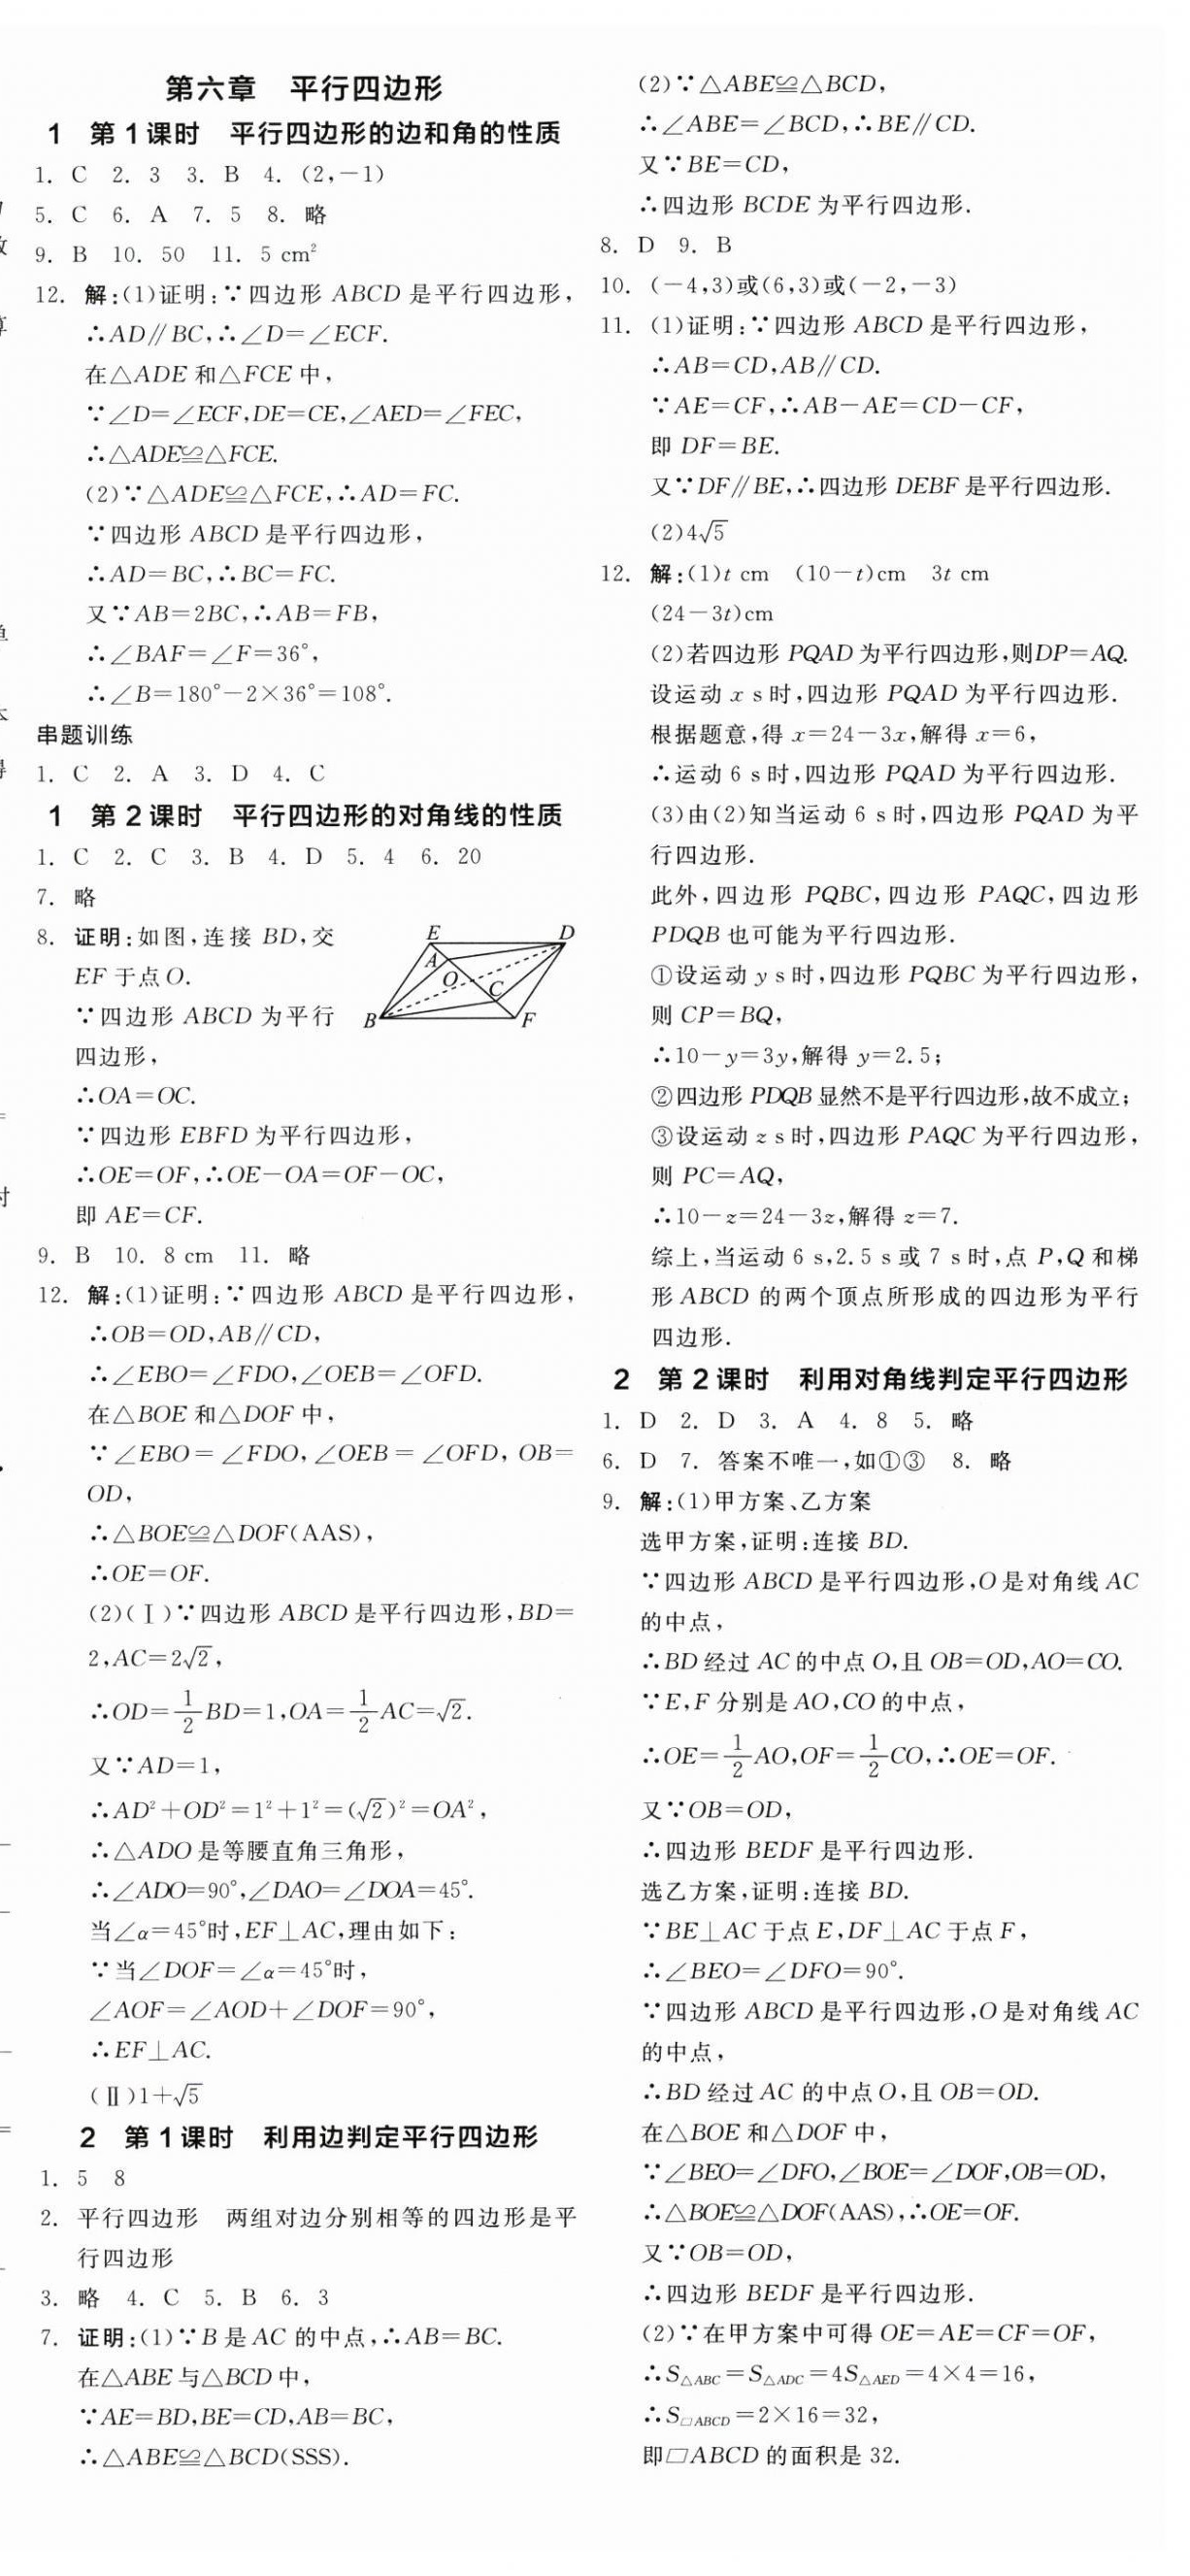 第六章 平行四边形
1 第1课时 平行四边形的边和角的性质
1. C 2. 3 3. B 4. (2,-1)
5. C 6. A 7. 5 8. 略
9. B 10. 50 11. 5 cm²
12. 解:(1)证明:∵四边形 ABCD 是平行四边形,
∴AD∥BC,∴∠D=∠ECF.
在△ADE 和△FCE 中,
∵∠D=∠ECF,DE=CE,∠AED=∠FEC,
∴△ADE≌△FCE.
(2)∵△ADE≌△FCE,∴AD=FC.
∵四边形 ABCD 是平行四边形,
∴AD=BC,∴BC=FC.
又∵AB=2BC,∴AB=FB,
∴∠BAF=∠F=36°,
∴∠B=180°-2×36°=108°.
串题训练
1. C 2. A 3. D 4. C
1 第2课时 平行四边形的对角线的性质
1. C 2. C 3. B 4. D 5. 4 6. 20
7. 略
8. 证明:如图,连接 BD,交
EF 于点 O.
∵四边形 ABCD 为平行
四边形,
E D A O C B F
∴OA=OC.
∵四边形 EBFD 为平行四边形,
∴OE=OF,∴OE-OA=OF-OC,
即 AE=CF.
9. B 10. 8 cm 11. 略
12. 解:(1)证明:∵四边形 ABCD 是平行四边形,
∴OB=OD,AB∥CD,
∴∠EBO=∠FDO,∠OEB=∠OFD.
在△BOE 和△DOF 中,
∵∠EBO=∠FDO,∠OEB=∠OFD,OB=
OD,
∴△BOE≌△DOF(AAS),
∴OE=OF.
(2)(Ⅰ)∵四边形 ABCD 是平行四边形,BD=
2,AC=2√2,
∴OD=1/2BD=1,OA=1/2AC=√2.
又∵AD=1,
∴AD²+OD²=1²+1²=(√2)²=OA²,
∴△ADO 是等腰直角三角形,
∴∠ADO=90°,∠DAO=∠DOA=45°.
当∠α=45°时,EF⊥AC,理由如下:
∵当∠DOF=∠α=45°时,
∠AOF=∠AOD+∠DOF=90°,
∴EF⊥AC.
(Ⅱ)1+√5
2 第1课时 利用边判定平行四边形
1. 5 8
2. 平行四边形 两组对边分别相等的四边形是平
行四边形
3. 略 4. C 5. B 6. 3
7. 证明:(1)∵B 是 AC 的中点,∴AB=BC.
在△ABE 与△BCD 中,
∵AE=BD,BE=CD,AB=BC,
∴△ABE≌△BCD(SSS).
(2)∵△ABE≌△BCD,
∴∠ABE=∠BCD,∴BE∥CD.
又∵BE=CD,
∴四边形 BCDE 为平行四边形.
8. D 9. B
10. (-4,3)或(6,3)或(-2,-3)
11. (1)证明:∵四边形 ABCD 是平行四边形,
∴AB=CD,AB∥CD.
∵AE=CF,∴AB-AE=CD-CF,
即 DF=BE.
又∵DF∥BE,∴四边形 DEBF 是平行四边形.
(2)4√5
12. 解:(1)t cm (10-t)cm 3t cm
(24-3t)cm
(2)若四边形 PQAD 为平行四边形,则DP=AQ.
设运动 x s时,四边形 PQAD 为平行四边形.
根据题意,得 x=24-3x,解得 x=6,
∴运动 6 s时,四边形 PQAD 为平行四边形.
(3)由(2)知当运动 6 s时,四边形 PQAD 为平
行四边形.
此外,四边形 PQBC,四边形 PAQC,四边形
PDQB 也可能为平行四边形.
①设运动 y s时,四边形 PQBC 为平行四边形,
则 CP=BQ,
∴10-y=3y,解得 y=2.5;
②四边形 PDQB 显然不是平行四边形,故不成立;
③设运动 z s时,四边形 PAQC 为平行四边形,
则 PC=AQ,
∴10-z=24-3z,解得 z=7.
综上,当运动 6 s,2.5 s或 7 s时,点 P,Q 和梯
形 ABCD 的两个顶点所形成的四边形为平行
四边形.
2 第2课时 利用对角线判定平行四边形
1. D 2. D 3. A 4. 8 5. 略
6. D 7. 答案不唯一,如①③ 8. 略
9. 解:(1)甲方案、乙方案
选甲方案,证明:连接 BD.
∵四边形 ABCD 是平行四边形,O 是对角线 AC
的中点,
∴BD 经过 AC 的中点 O,且 OB=OD,AO=CO.
∵E,F 分别是 AO,CO 的中点,
∴OE=1/2AO,OF=1/2CO,∴OE=OF.
又∵OB=OD,
∴四边形 BEDF 是平行四边形.
选乙方案,证明:连接 BD.
∵BE⊥AC 于点 E,DF⊥AC 于点 F,
∴∠BEO=∠DFO=90°.
∵四边形 ABCD 是平行四边形,O 是对角线 AC
的中点,
∴BD 经过 AC 的中点 O,且 OB=OD.
在△BOE 和△DOF 中,
∵∠BEO=∠DFO,∠BOE=∠DOF,OB=OD,
∴△BOE≌△DOF(AAS),∴OE=OF.
又∵OB=OD,
∴四边形 BEDF 是平行四边形.
(2)∵在甲方案中可得 OE=AE=CF=OF,
∴S△ABC=S△ADC=4S△AED=4×4=16,
∴S▱ABCD=2×16=32,
即▱ABCD 的面积是 32.